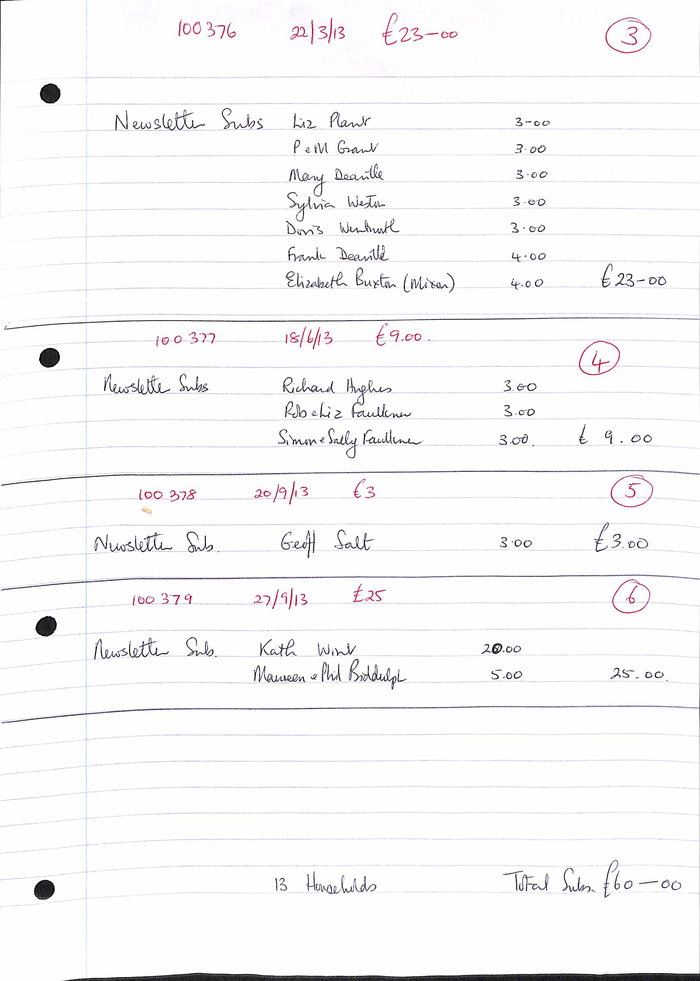 100376 22/3/13 £23-00 3
Newsletter Subs Liz Plant 3-00
P & M Grant 3.00
Mary Deaville 3.00
Sylvia Weston 3.00
Doris Wentworth 3.00
Frank Deaville 4.00
Elizabeth Buxton (Mixon) 4.00 £23-00
100377 18/6/13 £9.00. 4
Newsletter Subs Richard Hughes 3.00
Rob & Liz Faulkner 3.00
Simon & Sally Faulkner 3.00. £ 9.00
100378 20/9/13 £3 5
Newsletter Sub. Geoff Salt 3.00 £3.00
100379 27/9/13 £25 6
Newsletter Sub. Kath Wint 20.00
Maureen & Phil Biddulph 5.00 25.00.
13 Households Total Subs. £60-00